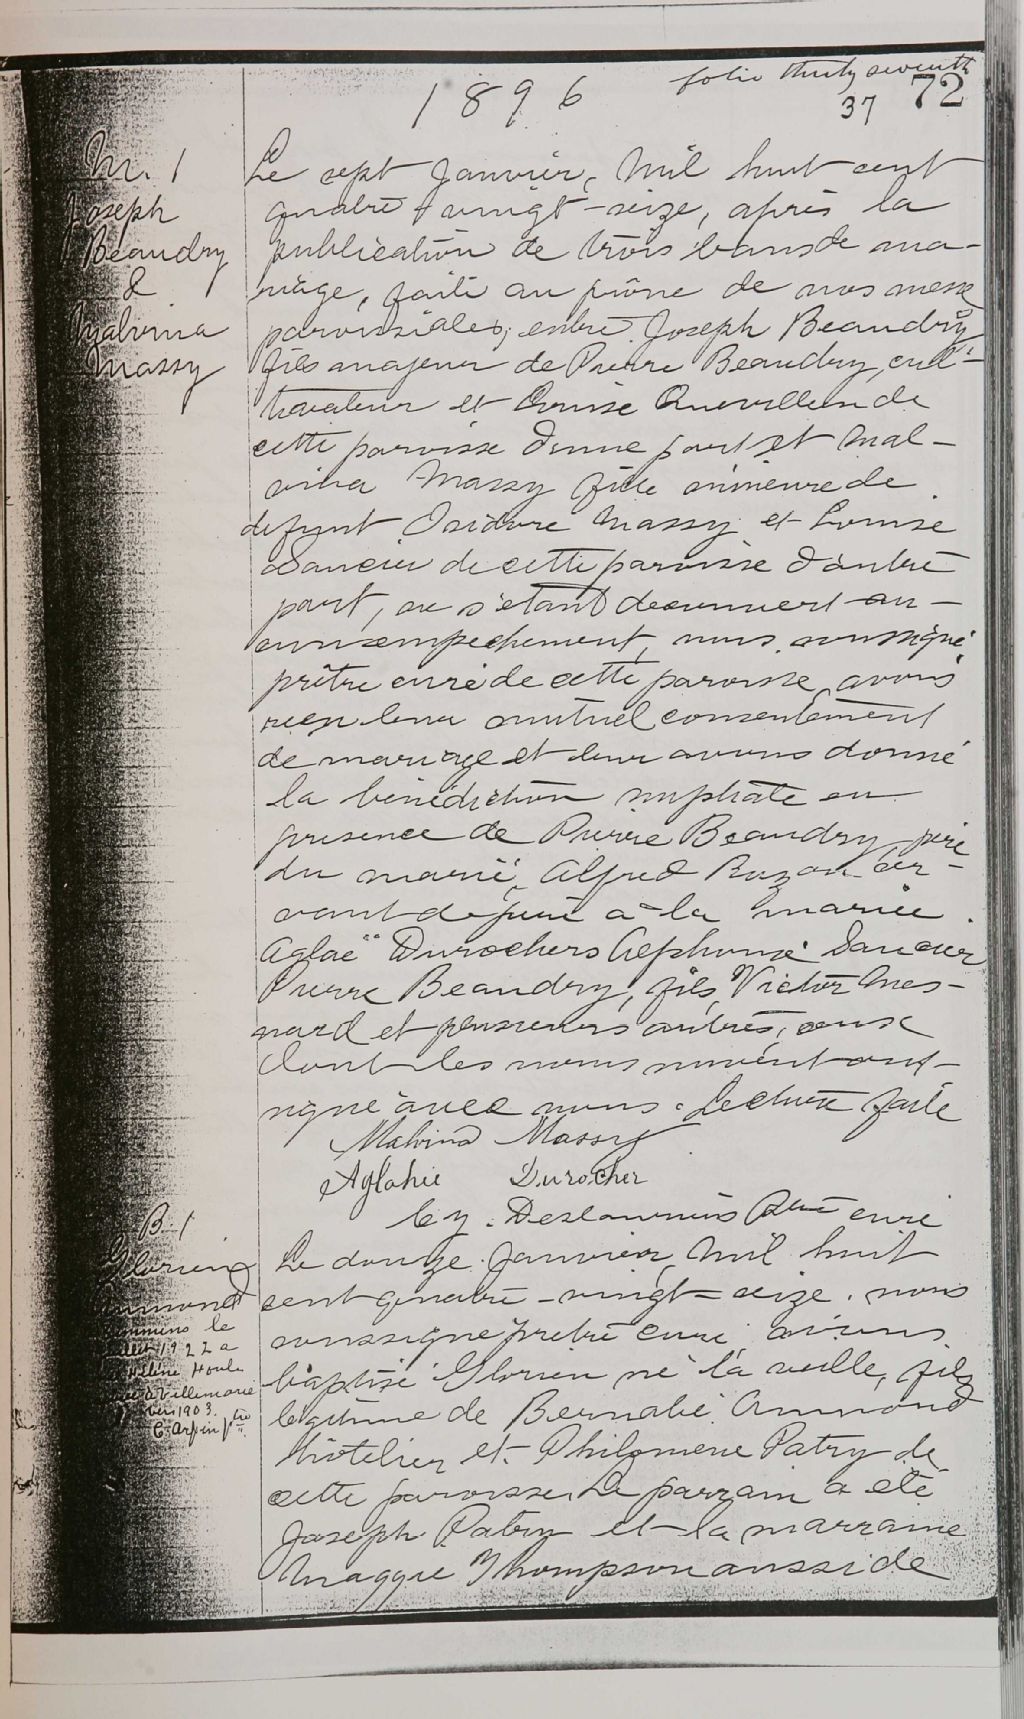 folio thirty seventh
1896
37 72
M. 1
Joseph
Beaudry
&
Malvina
Massy
Le sept Janvier, Mil huit cent
quatre vingt-seize, après la
publication de trois bans de ma-
riage, faite au prône de nos messes
paroissiales, entre Joseph Beaudry
fils majeur de Pierre Beaudry, cul-
tivateur et Louise Quevillon de
cette paroisse d'une part et Mal-
vina Massy fille mineure de
defunt Isidore Massy et Louise
de cette paroisse d'autre
part, ne s'etant decouvert au-
cun empechement, nous soussigné
prêtre curé de cette paroisse avons
reçu leur mutuel consentement
de mariage et leur avons donné
la bénédiction nuptiale en
presence de Pierre Beaudry, père
du marié, Alfred ser-
vant de père a la mariée.
Aglaë Durochers Alphonse
Pierre Beaudry, fils, Victor Mes-
nard et plusieurs autres, ceux
dont les noms suivent ont
signé avec nous. Lecture faite
Malvina Massy
Aglahie Durocher
Ptre curé
B. 1
Glorien
Ammond
le
1922 a
Hélène Houle
à Villemarie
1903.
C. Arpin ptre
Le douze Janvier, Mil huit
cent quatre-vingt-seize. nous
soussigné prêtre curé avons
baptisé Glorien né la veille, fils
legitime de Bernabé Ammond
hôtelier et Philomene Patry de
cette paroisse. Le parrain a été
Joseph Patry et la marraine
Maggie Thompson aussi de